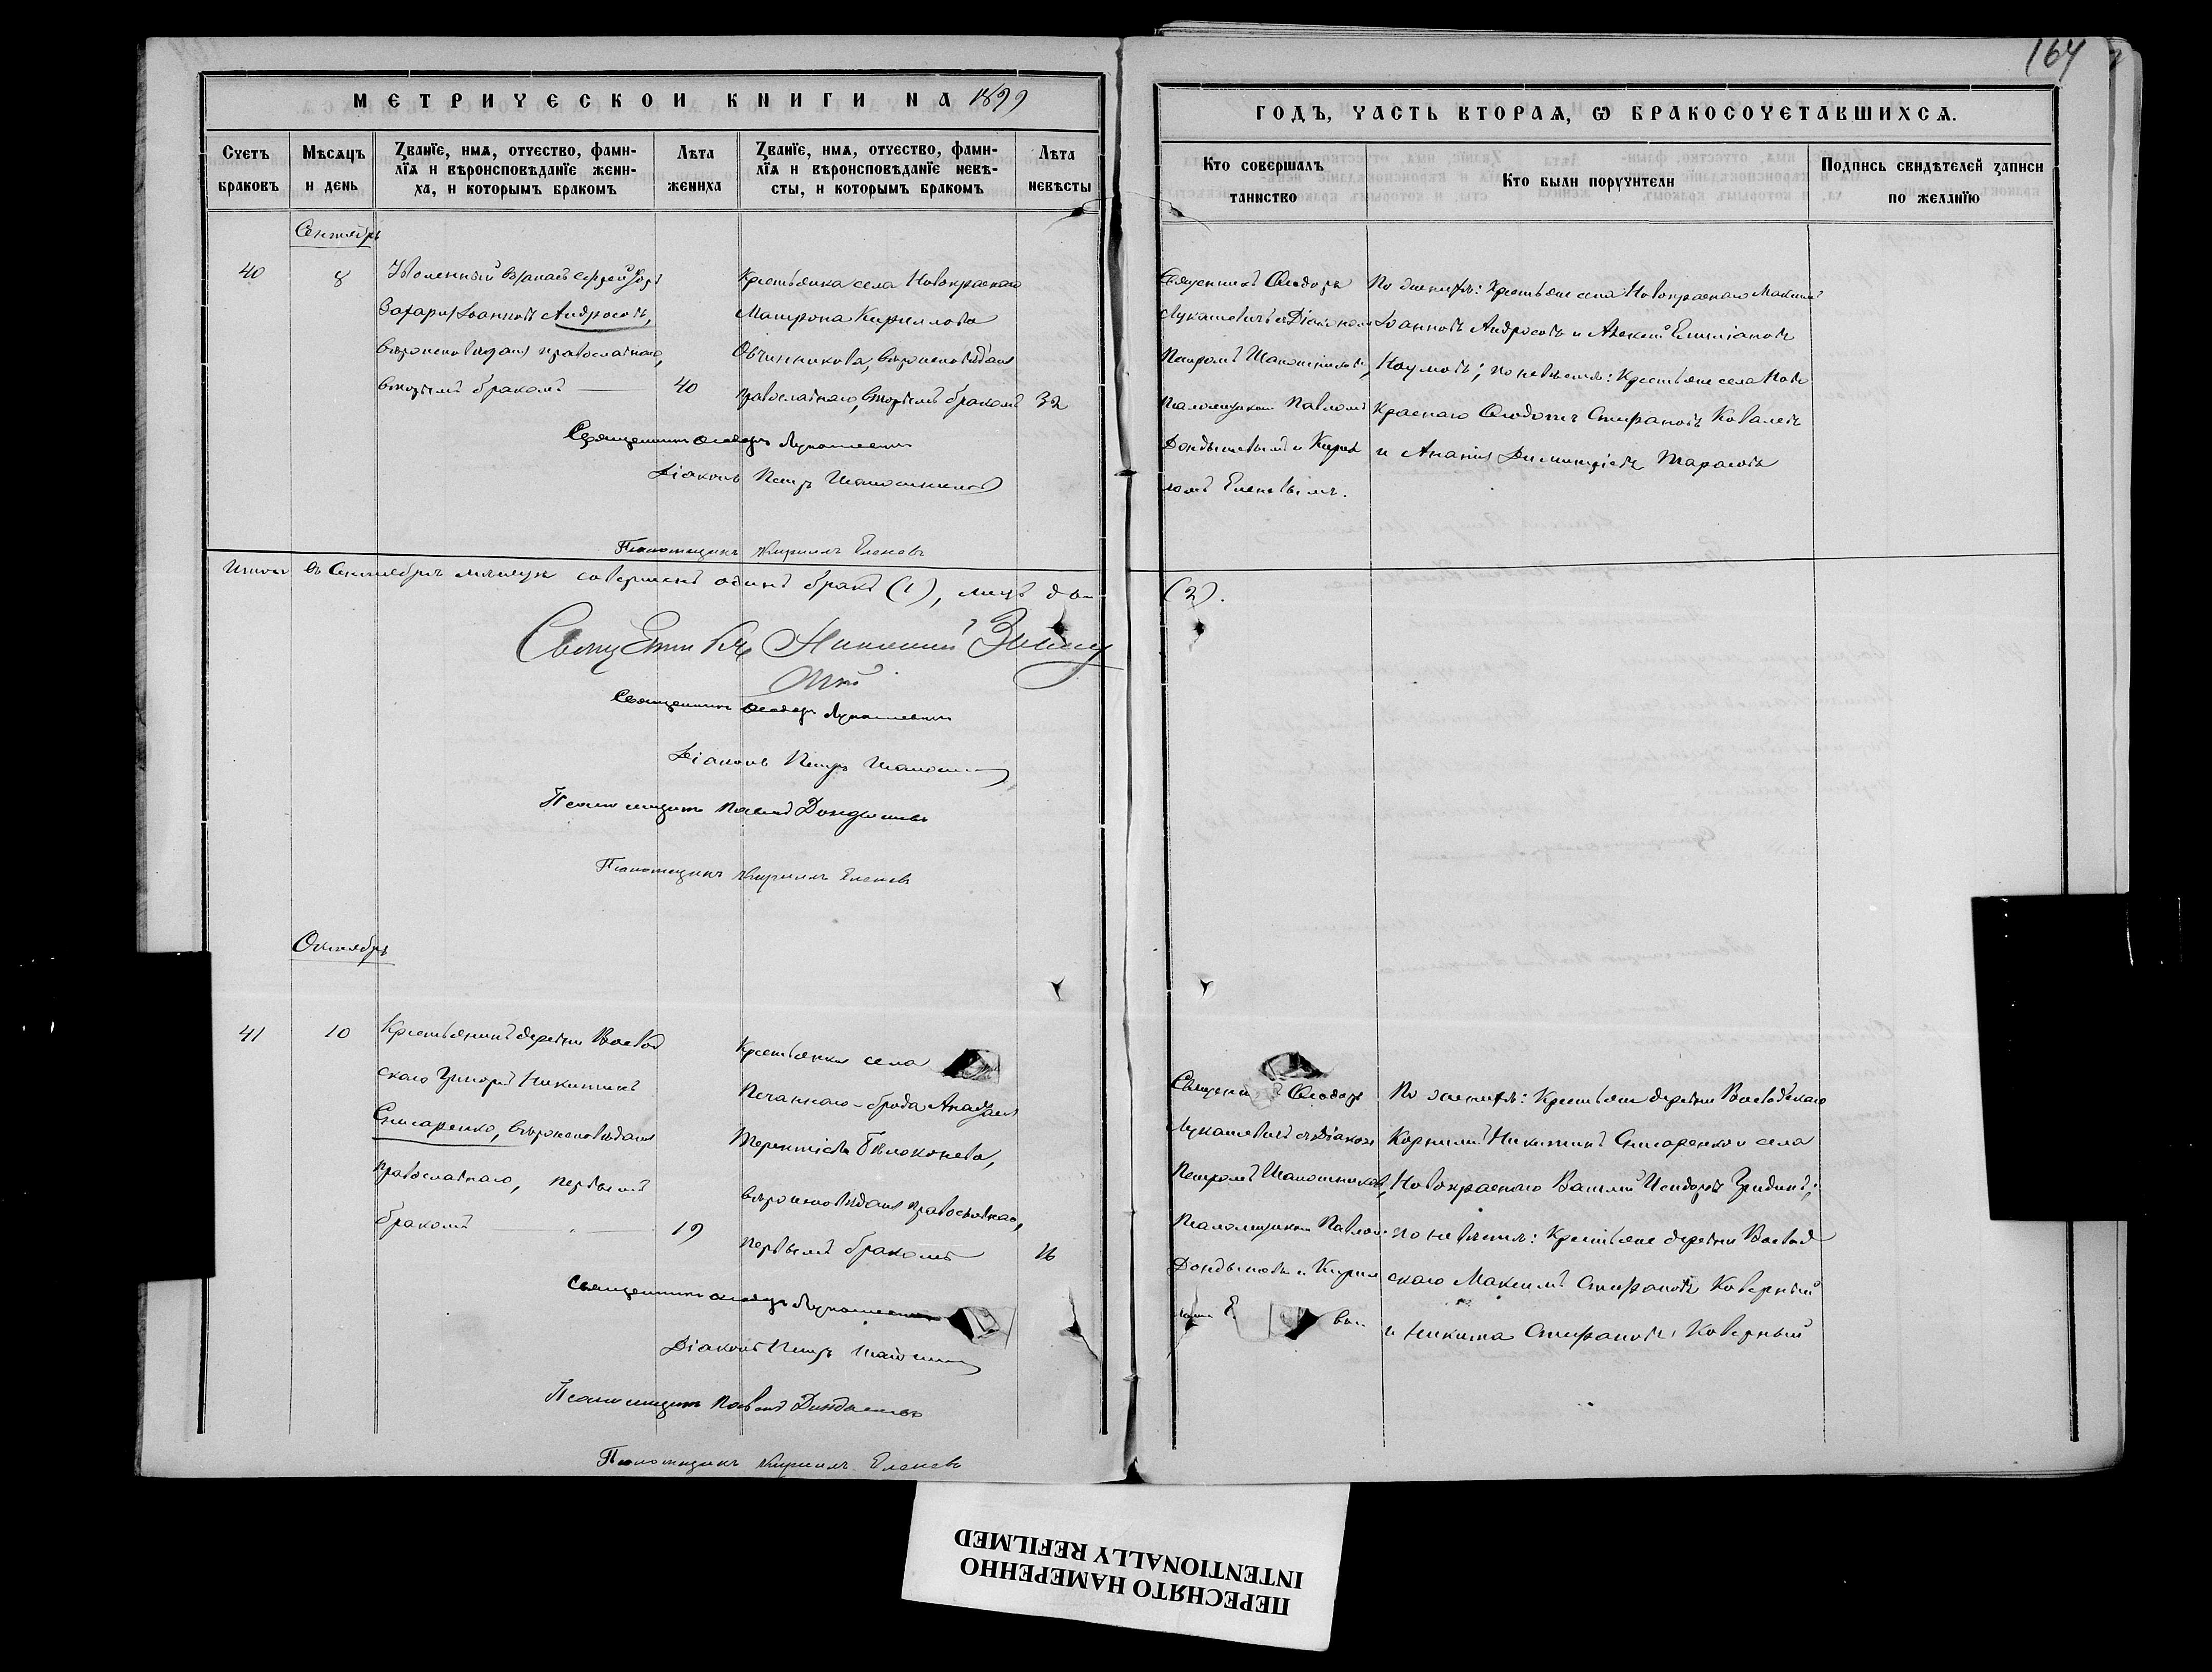 164
МЕТРИЧЕСКОЙ КНИГИ НА 1899
ГОДЪ, ЧАСТЬ ВТОРАЯ, Ѡ БРАКОСОЧЕТАВШИХСЯ.
Счетъ браковъ
Мѣсяцъ и день
Званїе, имя, отчество, фами-
лїя и вѣроисповѣданїе жени-
ха, и которымъ бракомъ
Лѣта жениха
Званїе, имя, отчество, фами-
лїя и вѣроисповѣданїе невѣ-
сты, и которымъ бракомъ
Лѣта невѣсты
Кто совершалъ таинство
Кто были поручители
Подпись свидѣтелей записи по желанїю
Сентябрь
40
8
Уволенный въ запасъ
Захарія Іоанновъ Андросовъ,
вѣроисповѣданія православнаго,
вторымъ бракомъ
40
Крестьянка села Новокраснаго
Матрона Кириллова
Овчинникова, вѣроисповѣданія
православнаго, вторымъ бракомъ
32
Священникъ Ѳеодоръ
Лукашевичъ съ Діакономъ
Петромъ Шапошниковымъ,
Псаломщиками Павломъ
Дондышевымъ и Кирил
ломъ Еленевымъ.
По женихѣ: Крестьяне села Новокраснаго Максимъ
Іоанновъ Андросовъ и Алексій Емиліановъ
Наумовъ; по невѣстѣ: Крестьяне села Ново
Краснаго Ѳеодотъ Стефановъ Ковалевъ
и Ананія Димитріевъ Тарасовъ
Священникъ Ѳеодоръ Лукашевичъ
Діаконъ Петръ Шапошниковъ
Псаломщикъ Кириллъ Еленевъ
Итого въ Сентябрѣ мѣсяцѣ совершенъ одинъ бракъ (1), лицъ два (2).
Николай
Священникъ Ѳеодоръ Лукашевичъ
Діаконъ Петръ Шапошниковъ
Псаломщикъ Павелъ Дондышевъ
Псаломщикъ Кириллъ Еленевъ
Октябрь
41
10
Крестьянинъ деревни Воевод
скаго Григорій Никитинъ
Слисаренко, вѣроисповѣданія
православнаго, первымъ
бракомъ
19
Крестьянка села
Песчаннаго-брода Анастасія
Терентіева Бѣлоконева,
вѣроисповѣданія православнаго,
первымъ бракомъ
16
Священникъ Ѳеодоръ
Лукашевичъ съ Діакономъ
Петромъ Шапошниковымъ,
Псаломщиками Павломъ
Дондышевымъ и Кирил
ломъ
По женихѣ: Крестьяне деревни Воеводскаго
Корнилій Никитинъ Слисаренко и села
Новокраснаго Василій Исидоровъ Гридинъ;
по невѣстѣ: Крестьяне деревни Воевод
скаго Максимъ Стефановъ Коверный
и Никита Стефановъ Коверный
Священникъ Ѳеодоръ Лукашевичъ
Діаконъ Петръ Шапошниковъ
Псаломщикъ Павелъ Дондышевъ
Псаломщикъ Кириллъ Еленевъ
ПЕРЕСНЯТО НАМЕРЕННО
INTENTIONALLY REFILMED